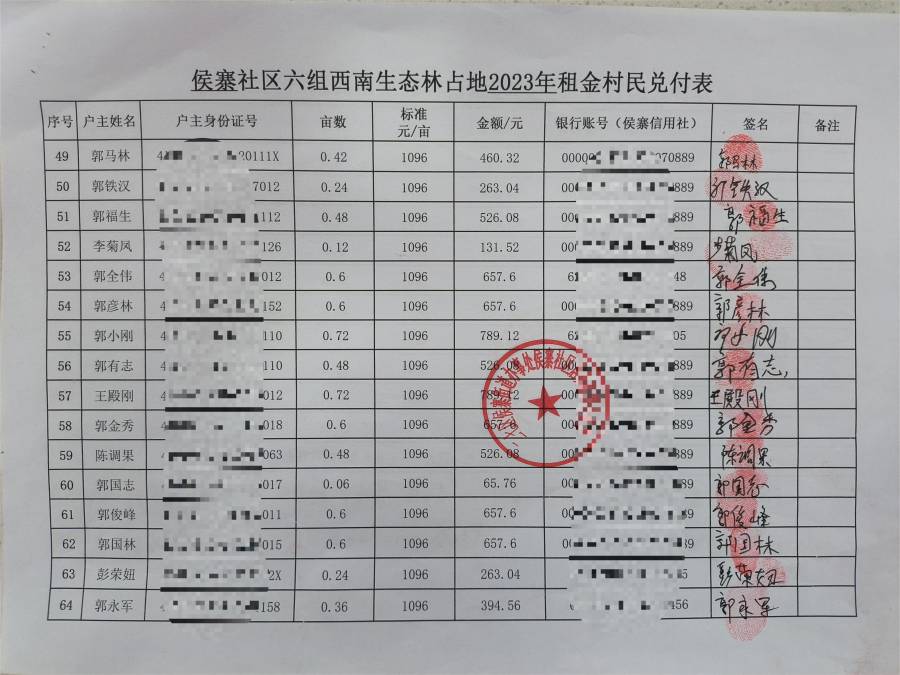 侯寨社区六组西南生态林占地2023年租金村民兑付表
序号 户主姓名 户主身份证号 亩数 标准 元/亩 金额/元 银行账号（侯寨信用社） 签名 备注
49 郭马林 4 20111X 0.42 1096 460.32 00000 070889 郭马林
50 郭铁汉 4 7012 0.24 1096 263.04 000 889 郭铁汉
51 郭福生 4 112 0.48 1096 526.08 000 889 郭福生
52 李菊凤 4 126 0.12 1096 131.52 000 889 菊凤
53 郭全伟 4 012 0.6 1096 657.6 62 48 郭全伟
54 郭彦林 4 152 0.6 1096 657.6 000 889 郭彦林
55 郭小刚 4 110 0.72 1096 789.12 62 05 郭小刚
56 郭有志 4 110 0.48 1096 526.08 00 889 郭有志
57 王殿刚 4 012 0.72 1096 789.12 889 王殿刚
58 郭金秀 4 018 0.6 1096 657.6 889 郭金秀
59 陈调果 4 063 0.48 1096 526.08 889 陈调果
60 郭国志 4 017 0.06 1096 65.76 000 889 郭国志
61 郭俊峰 4 011 0.6 1096 657.6 000 89 郭俊峰
62 郭国林 4 015 0.6 1096 657.6 000 89 郭国林
63 彭荣妞 4 2X 0.24 1096 263.04 00 5 彭荣妞
64 郭永军 4 158 0.36 1096 394.56 000 456 郭永军